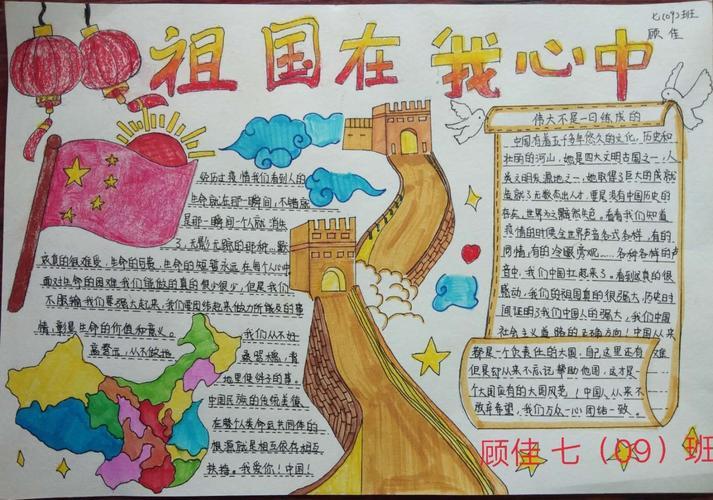 七(09)班
顾佳
祖国在我心中
伟大不是一日练成的
中国有着五千多年悠久的文化，历史和
壮丽的河山，她是四大文明古国之一，人
类文明发源地之一，她取得了巨大的成就
造就了无数杰出人才，要是没有中国历史的
存在，世界为之黯然失色。看着我们知道
疫情的时候全世界声音各式各样，有的
同情，有的冷眼旁观……各种各样的声
音中，我们中国扛起来了。看到这真的很
感动，我们的祖国真的很强大，历史时
间证明了我们中国人的强大，我们中国
社会主义道路的正确方向！中国从来
都是一个负责任的大国，自己这里还有难
但是却从来不忘记帮助他国，这才是一
个大国应有的大国风范！中国人从来不
放弃希望，我们万众一心团结一致。
经历过疫情我们看到人的
生命就在那一瞬间，不错就
是那一瞬间一个人就消失
了，无影无踪的那种。
这真的很难受，生命的
生命的短暂永远在每个人心中
面对生命的困难我们能做的真的很少很少，但是我们
不服输我们要强大起来，我们要团结起来做力所能及的事
情，彰显生命的价值和意义。
我们从不好
高骛远，从不做地
地里使绊子的事。
中国民族的传统美德
在整个人类命运共同体的
根源就是相互依存相互
扶持。我爱你！中国！
顾佳 七（09）班